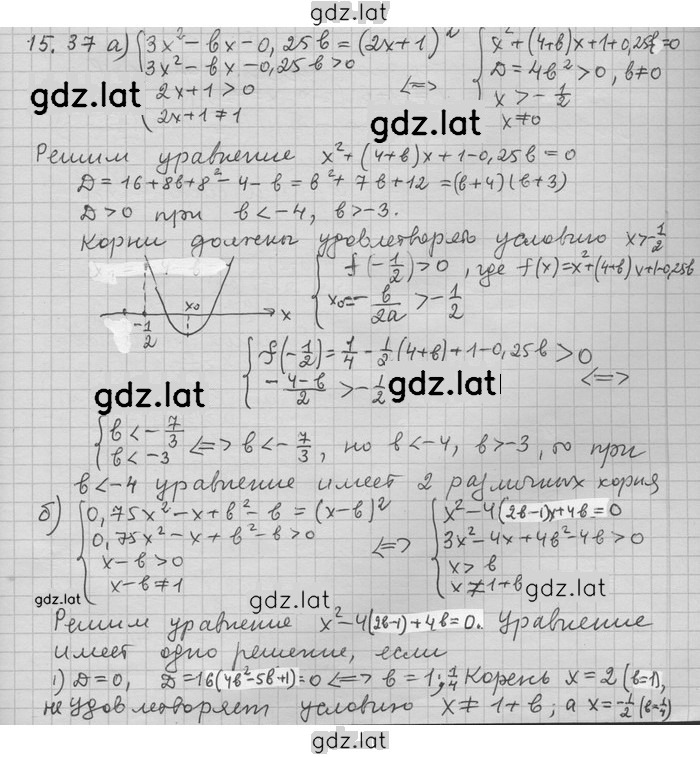 gdz.lat
15.37 а) { 3x² − bx − 0,25b = (2x+1)² { x² + (4+b)x + 1 + 0,25b = 0
3x² − bx − 0,25b > 0 <=> D = 4b² > 0, b ≠ 0
2x+1 > 0 x > −1/2
2x+1 ≠ 1 x ≠ 0
gdz.lat gdz.lat
Решим уравнение x² + (4+b)x + 1 − 0,25b = 0
D = 16 + 8b + 8² − 4 − b = b² + 7b + 12 = (b+4)(b+3)
D > 0 при b < −4, b > −3.
Корни должны удовлетворять условию x > −1/2
{ f(−1/2) > 0, где f(x) = x² + (4+b)x + 1 − 0,25b
x₀ = −b/2a > −1/2
x₀ x
−1/2
{ f(−1/2) = 1/4 − 1/2(4+b) + 1 − 0,25b > 0
−4−b/2 > −1/2 <=>
gdz.lat gdz.lat
{ b < −7/3
b < −3 <=> b < −7/3, но b < −4, b > −3, то при
b < −4 уравнение имеет 2 различных корня
б) { 0,75x² − x + b² − b = (x−b)² { x² − 4(2b−1)x + 4b = 0
0,75x² − x + b² − b > 0 <=> 3x² − 4x + 4b² − 4b > 0
x − b > 0 x > b
x − b ≠ 1 x ≠ 1 + b
gdz.lat gdz.lat gdz.lat
Решим уравнение x² − 4(2b−1) + 4b = 0. Уравнение
имеет одно решение, если
1) D = 0, D = 16(4b² − 5b + 1) = 0 <=> b = 1; 1/4 Корень x = 2 (b=1),
не удовлетворяет условию x ≠ 1 + b; а x = −1/2 (b=1/4)
gdz.lat